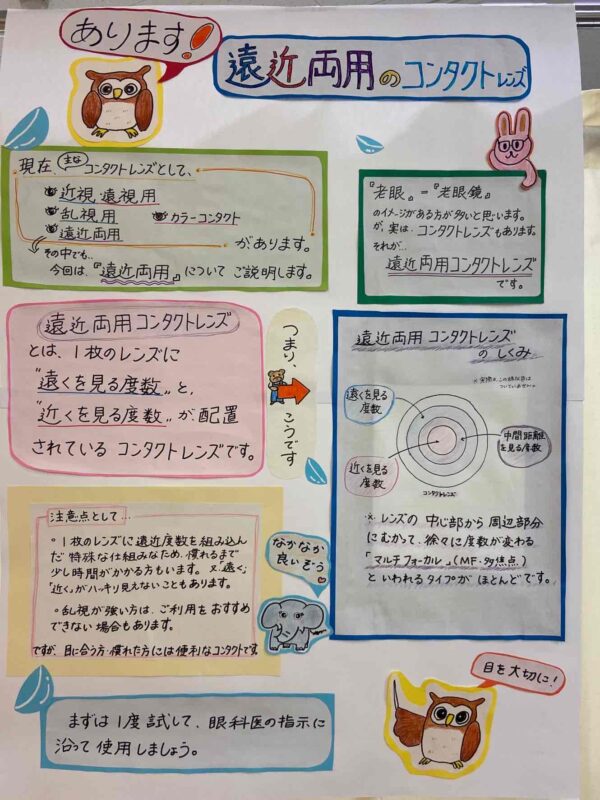 あります!
遠近両用のコンタクトレンズ
現在、主なコンタクトレンズとして、
近視・遠視用
乱視用
カラーコンタクト
遠近両用
があります。
その中でも…
今回は、『遠近両用』について ご説明します。
『老眼』=『老眼鏡』
のイメージがある方が多いと思います。
が、実は、コンタクトレンズもあります。
それが…
遠近両用コンタクトレンズ
です。
遠近両用コンタクトレンズ
とは、1枚のレンズに
"遠くを見る度数"と、
"近くを見る度数"が、配置
されている コンタクトレンズです。
つまり、
こうです
遠近両用 コンタクトレンズ
の しくみ
※実際は、この様な色は
ついていません。
遠くを見る
度数
中間距離
を見る度数
近くを見る
度数
コンタクトレンズ
※ レンズの 中心部から 周辺部分
にむかって、徐々に度数が変わる
「マルチフォーカル」(MF・多焦点)
といわれるタイプが ほとんどです。
注意点として…
。1枚のレンズに遠近度数を組み込ん
だ 特殊な仕組みなため、慣れるまで
少し時間がかかる方もいます。又、「遠く」
「近く」が、ハッキリ見えないこともあります。
。乱視が強い方は、ご利用をおすすめ
できない場合もあります。
ですが、目に合う方・慣れた方には便利なコンタクトです
なかなか
良いぞう
まずは 1度 試して、眼科医の指示に
沿って 使用しましょう。
目を大切に!